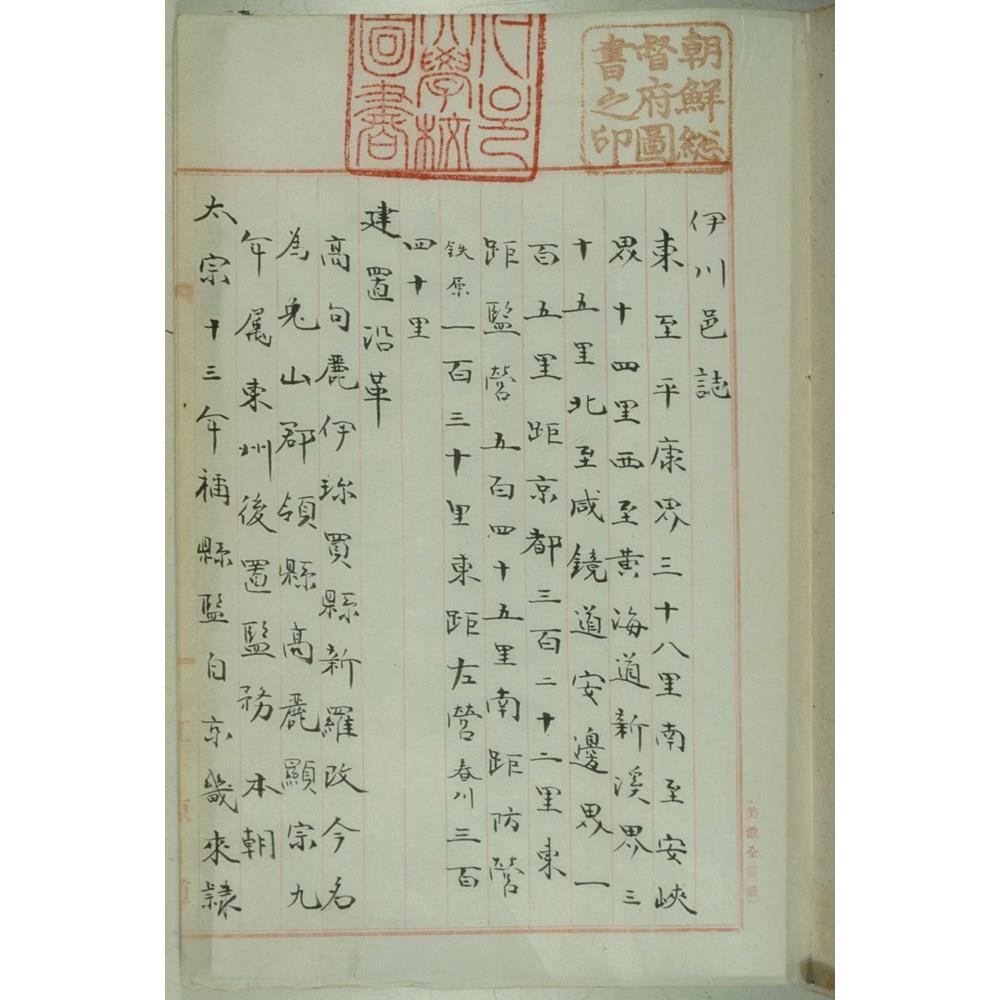 朝鮮総
督府圖
書之印
大學校
圖書
伊川邑誌
東至平康界三十八里南至安峽
界十四里西至黃海道新溪界三
十五里北至咸鏡道安邊界一
百五里距京都三百二十二里東
距監營五百四十五里南距防營
鉄原一百三十里東距左營春川三百
四十里
建置沿革
高句麗伊珍買縣新羅改今名
為兎山郡領縣高麗顯宗九
年属東州後置監務 本朝
太宗十三年稱縣監自京畿來隷